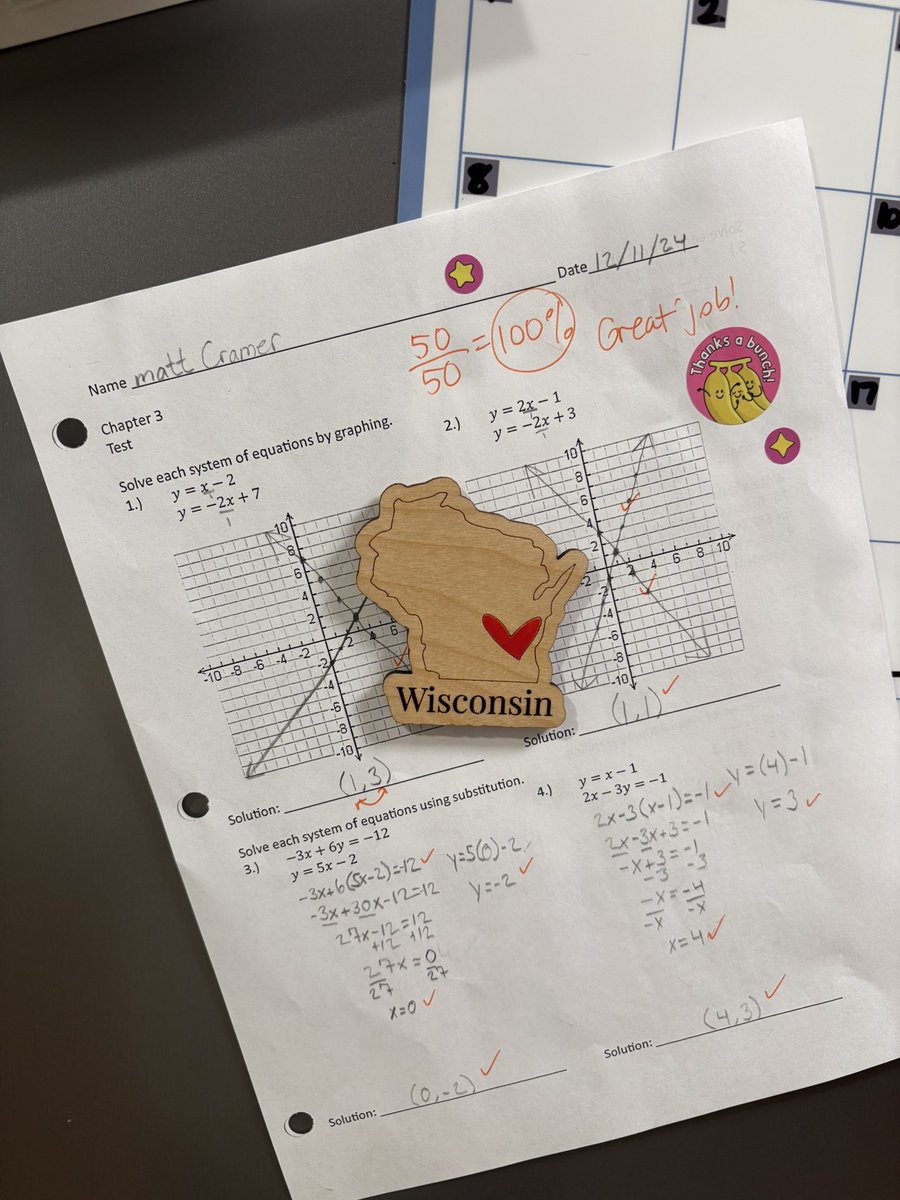 2.
8
10
17
Date 12/11/24
Name Matt Cramer
50/50 = 100% Great job!
Thanks a bunch!
Chapter 3
Test
Solve each system of equations by graphing.
1.) y = x − 2
y = −2x + 7
1
2.) y = 2x − 1
y = −2x + 3
10
8
6
4
2
-10 -8 -6 -4 -2 2 6
-2
-4
-8
-10
10
8
6
4
2
2 4 6 8 10
-2
-6
-8
-10
Wisconsin
Solution: (1,3)
Solution: (1,1)
Solve each system of equations using substitution.
3.) −3x + 6y = −12
y = 5x − 2
-3x+6(5x-2)=12
-3x+30x-12=12
27x-12=12
+12 +12
27x = 0
27 27
x=0
y=5(0)-2
y=-2
Solution: (0,-2)
4.) y = x − 1
2x − 3y = −1
2x-3(x-1)=-1
2x-3x+3=-1
-x+3=-1
-3 -3
-x=-4
-x -x
x=4
y=(4)-1
y=3
Solution: (4,3)